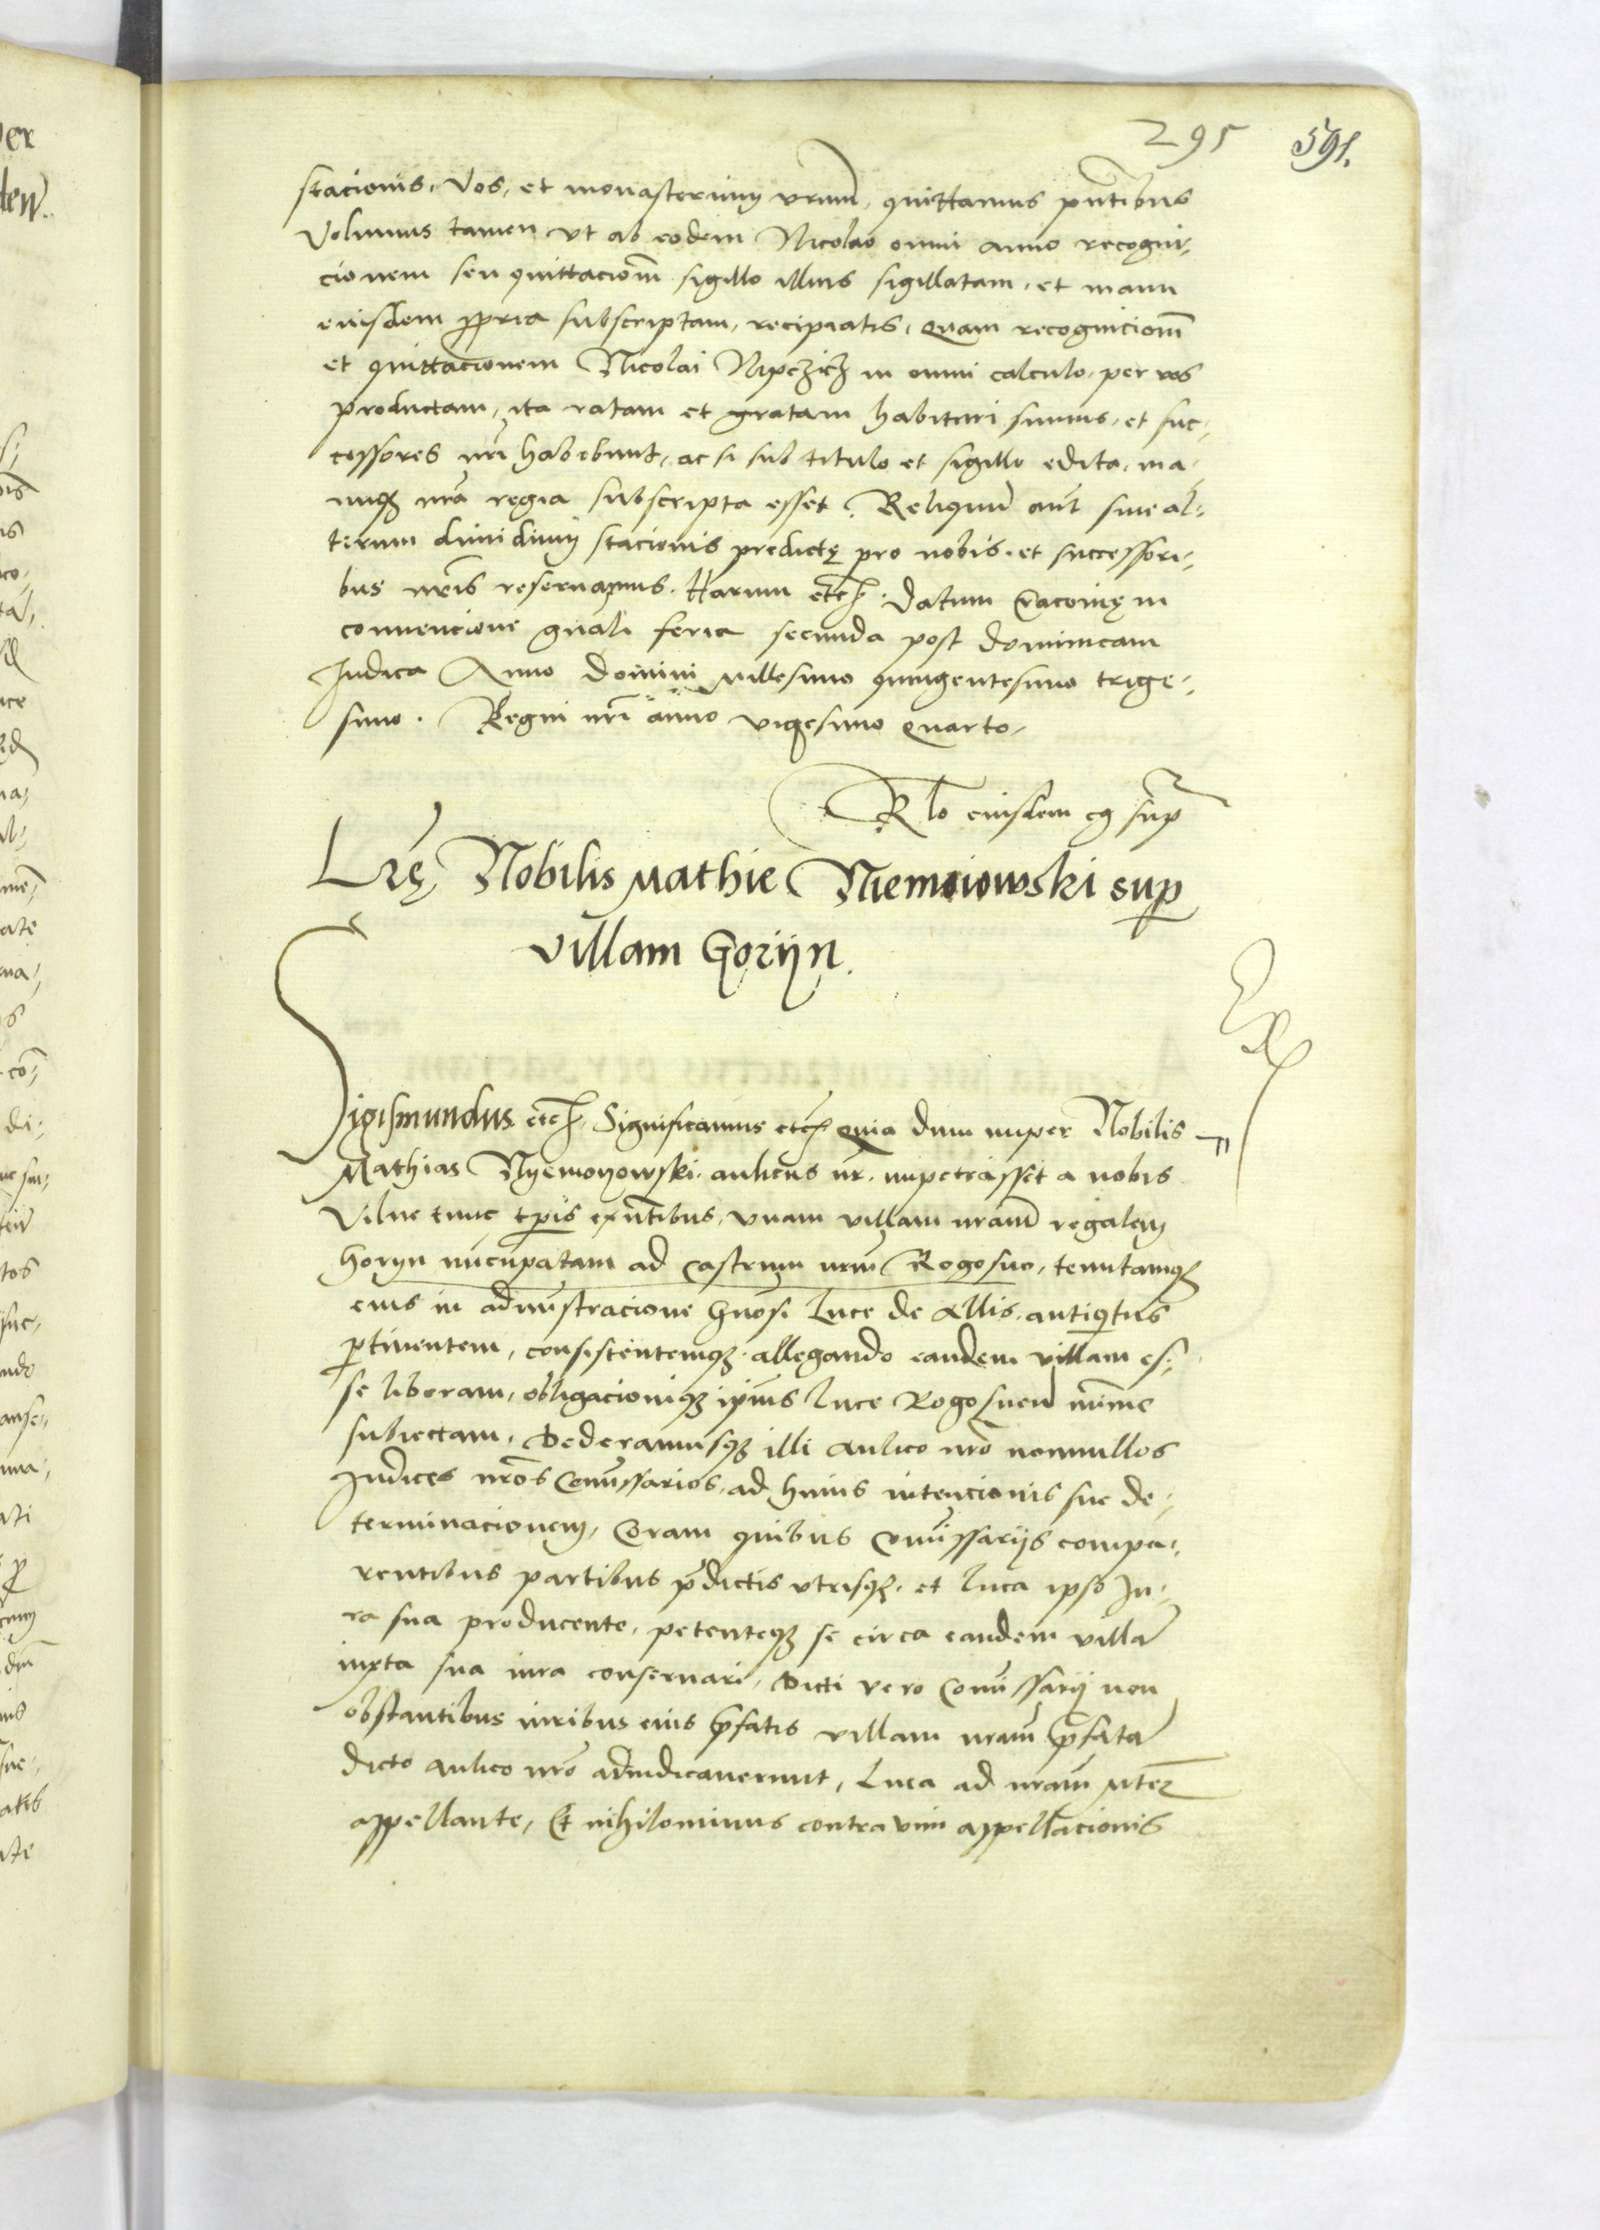 295 591.
stacionis, vos, et monasterium vrum, quittamus pntibus
Volumus tamen vt ab eodem Nicolao omni anno recogni-
cionem seu quittacionm sigillo illius sigillatam, et manu
eiusdem ppria subscriptam, recipiatis, quam recognicionm
et quittacionem Nicolai Nipczicz in omni calculo, per vos
productam, ita ratam et gratam habituri sumus, et suc-
cessores nri habebunt, ac si sub titulo et sigillo edita, ma-
nuq nra regia subscripta esset. Reliquum aut siue al-
terum dimidium stacionis predictę pro nobis, et successori-
bus nris reseruamus. Harum etc. Datum Cracouię in
conuencione gnali feria secunda post dominicam
Iudica Anno domini Millesimo quingentesimo trige-
simo. Regni nri anno vigesimo quarto.
Rlo eiusdem q sup
Lrę Nobilis Mathie Niemoiowski sup
villam Goriyn.
Sigismundus etc. Significamus etc. quia dum nuper Nobilis
Mathias Nyemoyowski, aulicus nr, impetrasset a nobis
Vilne tunc tpis exntibus, vnam villam nram regalem
Goryn nuncupatam ad castrum nrm Rogosno, tenutamq
eius in admistracione Gnosi Luce de Allis, antiqitus
ptinentem, consistentemq, allegando eandem villam es-
se liberam, obligacioniq ipius Luce Rogosnen minime
subiectam, Dederamusq illi aulico nro nonnullos
Iudices nros Comissarios, ad huius intencionis sue de-
terminacionem, Coram quibus comissariis compa-
rentibus partibus pdictis vtrisq, et Luca ipso Iu-
ra sua producente, petenteq se circa eandem villa
iuxta sua iura conseruari, Dicti vero Comissarii non
obstantibus iuribus eius pfatis villam nram pfata
dicto aulico nro adiudicauerunt, Luca ad nram Mtem
appellante, Et nihilominus contra vim appellacionis